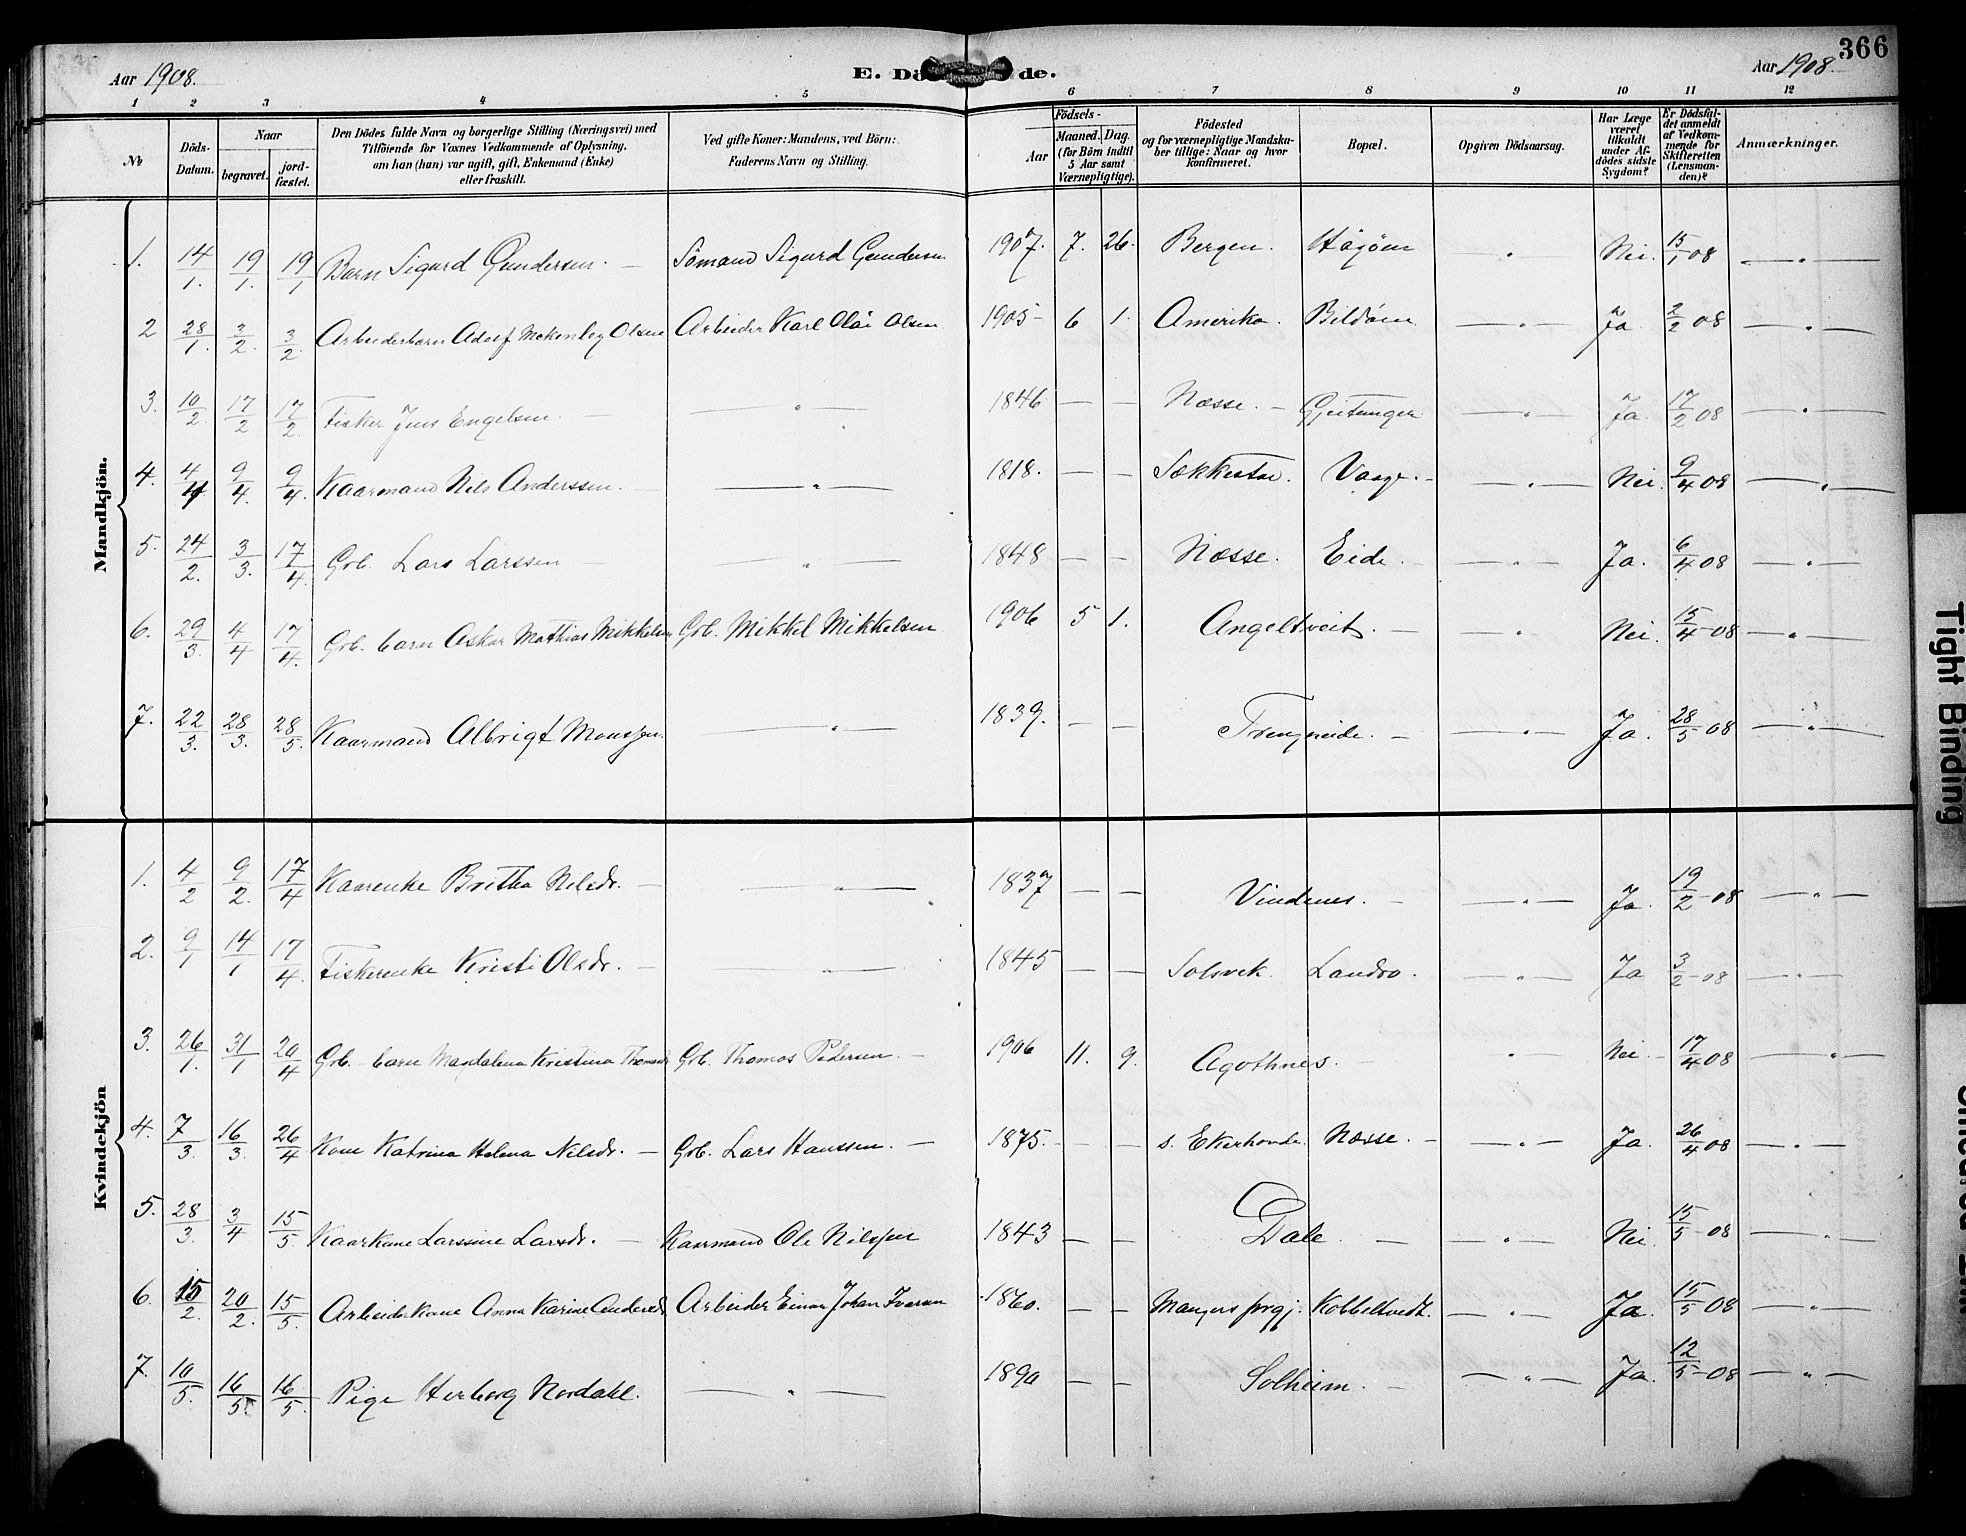 366
Aar 1908. E. Dö de. Aar 1908.
1 2 3 4 5 6 7 8 9 10 11 12
No
Döds-Datum.
Naar
begravet.
jord-fæstet.
Den Dödes fulde Navn og borgerlige Stilling (Næringsvei) med
Tilföiende for Voxnes Vedkommende af Oplysning,
om han (hun) var ugift, gift, Enkemand (Enke)
eller fraskilt.
Ved gifte Koner: Mandens, ved Börn:
Faderens Navn og Stilling.
Födsels-
Aar
Maaned. Dag.
(for Börn indtil
5 Aar samt
Værnepligtige).
Födested
og for værnepligtige Mandska-
ber tillige: Naar og hvor
konfirmeret.
Bopæl.
Opgiven Dödsaarsag.
Har Læge
været
tilkaldt
under Af-
dödes sidste
Sygdom?
Er Dödsfal-
det anmeldt
af Vedkom-
mende for
Skifteretten
(Lensman-
den)?
Anmærkninger.
Mandkjön.
1. 14/1. 19/1. 19/1 Barn Sigurd Gundersen. — Sömand Sigurd Gundersen 1907. 7. 26. Bergen. Högöen " Nei. 15/1 08 — " —
2 28/1. 3/2. 3/2. Arbeiderbarn Adolf Mckenley Olsen Arbeider Karl Olai Olsen 1905 — 6 1. Amerika. Bildöen — " — Ja. 2/2 08 — " —
3. 10/2 17/2 17/2. Fisker Jens Engelsen. — — " — 1846 — — Næsse. — Gjeitanger — " — Ja. 17/2 08 "
4. 4/4 9/4. 9/4. Kaarmand Nils Anderssen. — " — 1818. — — Sekkestae. Vaage. — — " — Nei. 9/4 08 — " —
5. 24/2. 3/3. 17/4. Grb. Lars Larssen — — " — 1848 — — Næsse. Eide. — — " — Ja. 6/4 08 — " —
6. 29/3. 4/4 17/4. Grb. barn Oskar Mathias Mikkelsen Grb. Mikkel Mikkelsen 1906 5 1. Angeltveit. — " Nei. 15/4 -08 — " —
7. 22/3. 28/3. 28/5. Kaarmand Albrigt Monssen. — " — 1839. — — Trengereide. — — " — Ja. 28/5 08 — " —
Kvindekjön
1. 4/2 9/2. 17/4 Kaarenke Britha Nilsdr. — — " — 1837 — — Vindenes. — — " — Ja. 19/2 -08 — " —
2. 9/1 14/1 17/4. Fiskerenke Kristi Olsdr. — — " — 1845 — — Solsvik. Landro. — " — Ja 3/2 -08 — " —
3. 26/1. 31/1 20/4 Grb. barn Magdalena Kristina Thomasdr Grb. Thomas Pedersen. — 1906 11. 9. Agothnes. " Nei — 17/4 08 — " —
4. 7/3. 16/3. 26/4 Kone Katrina Helena Nilsdr. — Grb. Lars Hanssen. — 1875. — — s. Ekerhovde. Næsse. — — " — Ja. 26/4 08 — " —
5. 28/3. 3/4 15/5. Kaarkone Larssine Larsdr. — Kaarmand Ole Nilssen 1843 — — Dale — — " — Nei. 15/5 -08 — " —
6. 15/2. 20/2. 15/5. Arbeiderkone Anna Karine Andersdr. Arbeider Einar Johan Ivarsen 1860. — — Mangers prgj. Kobbeltvedt. — " — Ja. 15/5 08 — " —
7. 10/5. 16/5. 16/5. Pige Herborg Nordahl. — " — 1890 — — Solheim. — — " — Ja. 12/5 -08 — " —
Tight Binding